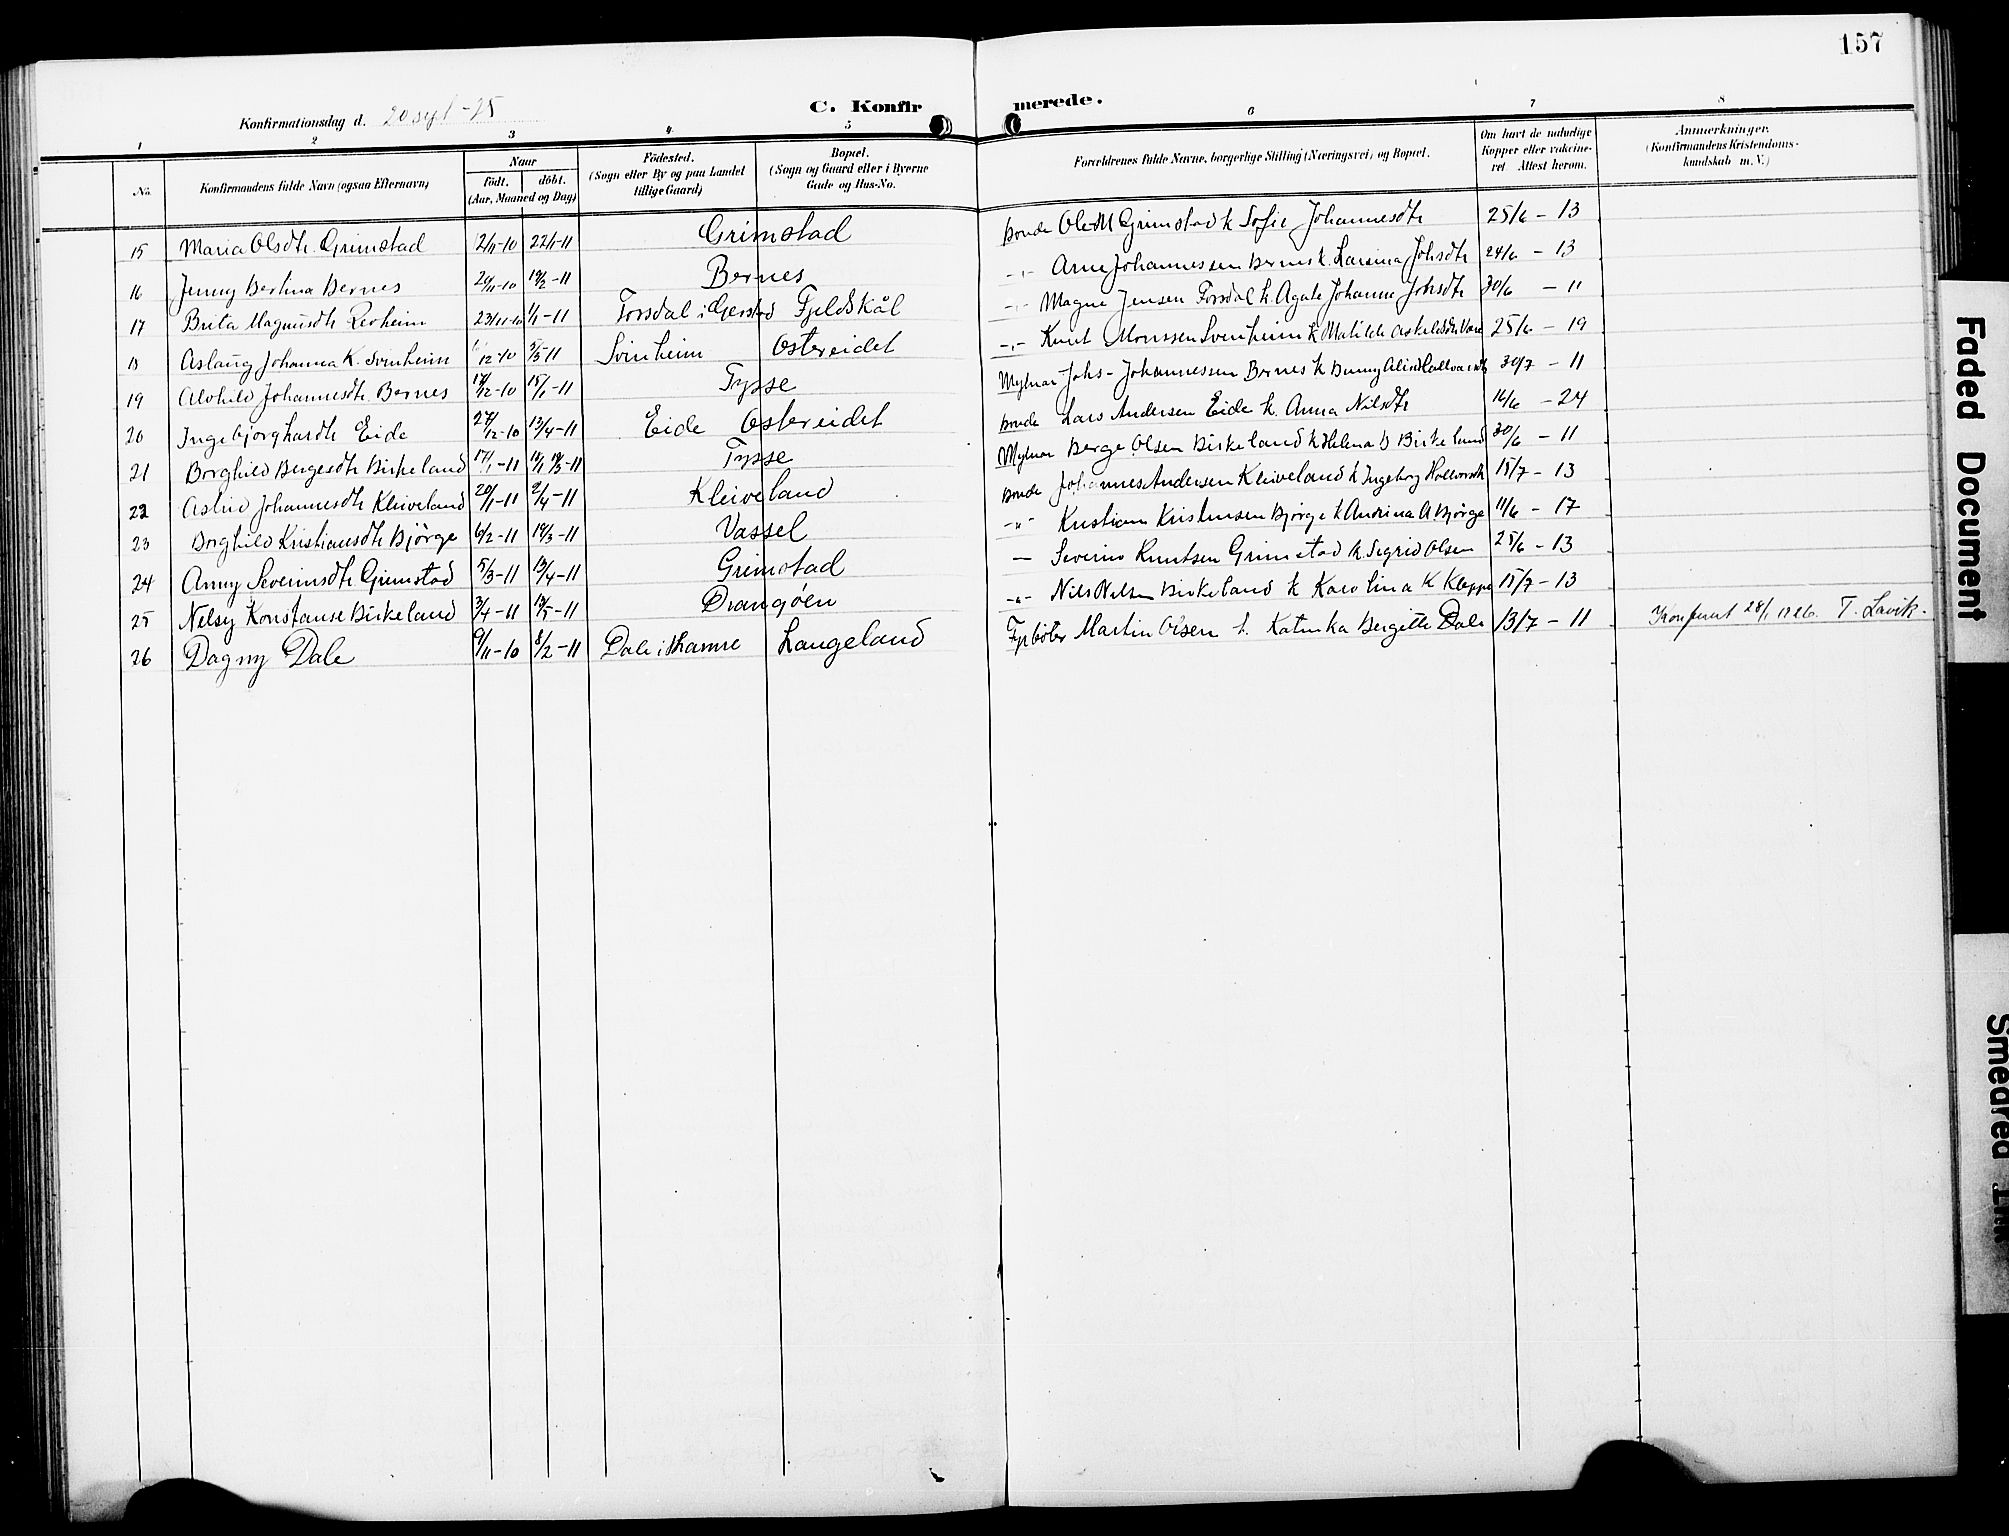 157
C. Konfirmerede.
Konfirmationsdag d. 20 sept -25
1 2 3 4 5 6 7 8
No.
Konfirmandens fulde Navn (ogsaa Efternavn)
Naar
født. døbt.
(Aar, Maaned og Dag)
Fødested.
(Sogn eller By og paa Landet
tillige Gaard)
Bopæl.
(Sogn og Gaard eller i Byerne
Gade og Hus-No.
Forældrenes fulde Navne, borgerlige Stilling (Næringsvei) og Bopæl.
Om havt de naturlige
Kopper eller vakcine-
ret Attest herom.
Anmærkninger.
(Konfirmandens Kristendoms-
kundskab m. V.)
15 Maria Olsdtr. Grimstad 2/11-10 22/1-11 Grimstad bonde Ole M Grimstad k Sofie Johannesdtr 25/6 - 13
16 Jenny Bertina Bernes 24/11-10 19/2-11 Bernes -"- Arne Johannessen Bernes k. Larsina Johsdtr 24/6 - 13
17 Brita Magnusdtr 23/11-10 1/1-11 Forsdal i Fjeldskål -"- Magne Jensen Forsdal k. Agate Johanne Johsdtr 30/6 - 11
18 Aslaug Johanna K. Svinheim 12-10 5/3-11 Svinheim Ostereidet -"- Knut Monssen Svenheim k Matilde 25/6 - 19
19 Alvhild Johannesdtr. Bernes 17/12-10 15/1-11 Tysse Mylnar Johs- Johannessen Bernes k 30/7 - 11
20 Ingebjorg Larsdtr Eide 27/12-10 13/4-11 Eide Ostereidet bonde Lars Andersen Eide k. Anna Nilsdtr 16/6 - 24
21 Borghild Bergesdtr Birkeland 17/1-11 19/3-11 Tysse Mylnar Berge Olsen Birkeland k Helena B Birkeland 30/6 - 11
22 Astrid Johannesdtr Kleiveland 20/1-11 2/4-11 Kleiveland bonde Johannes Andersen Kleiveland k Ingeborg Hallvorsdtr 15/7 - 13
23 Borghild Kristiansdtr Bjørge 6/2-11 19/3-11 Vassel -"- Kristian Kristensen Bjørge k Andrina A Bjørge 11/6 - 17
24 Anny Severinsdtr Grimstad 5/3-11 13/4-11 Grimstad — Severin Knutsen Grimstad k. Sigrid Olsen 25/6 - 13
25 Nelsy Konstanse Birkeland 3/4-11 /5-11 Drangøen -"- Nils Nilsen Birkeland k Karolina K Kleppe 15/7 - 13
26 Dagny Dale 9/11-10 8/2-11 Dale i Hamre Langeland Fyrbøter Martin Olsen k. Katinka Bergitte Dale 13/7 - 11 Konfirmat 28/1 1926. T. Lavik.
Faded Document
Smeared Ink